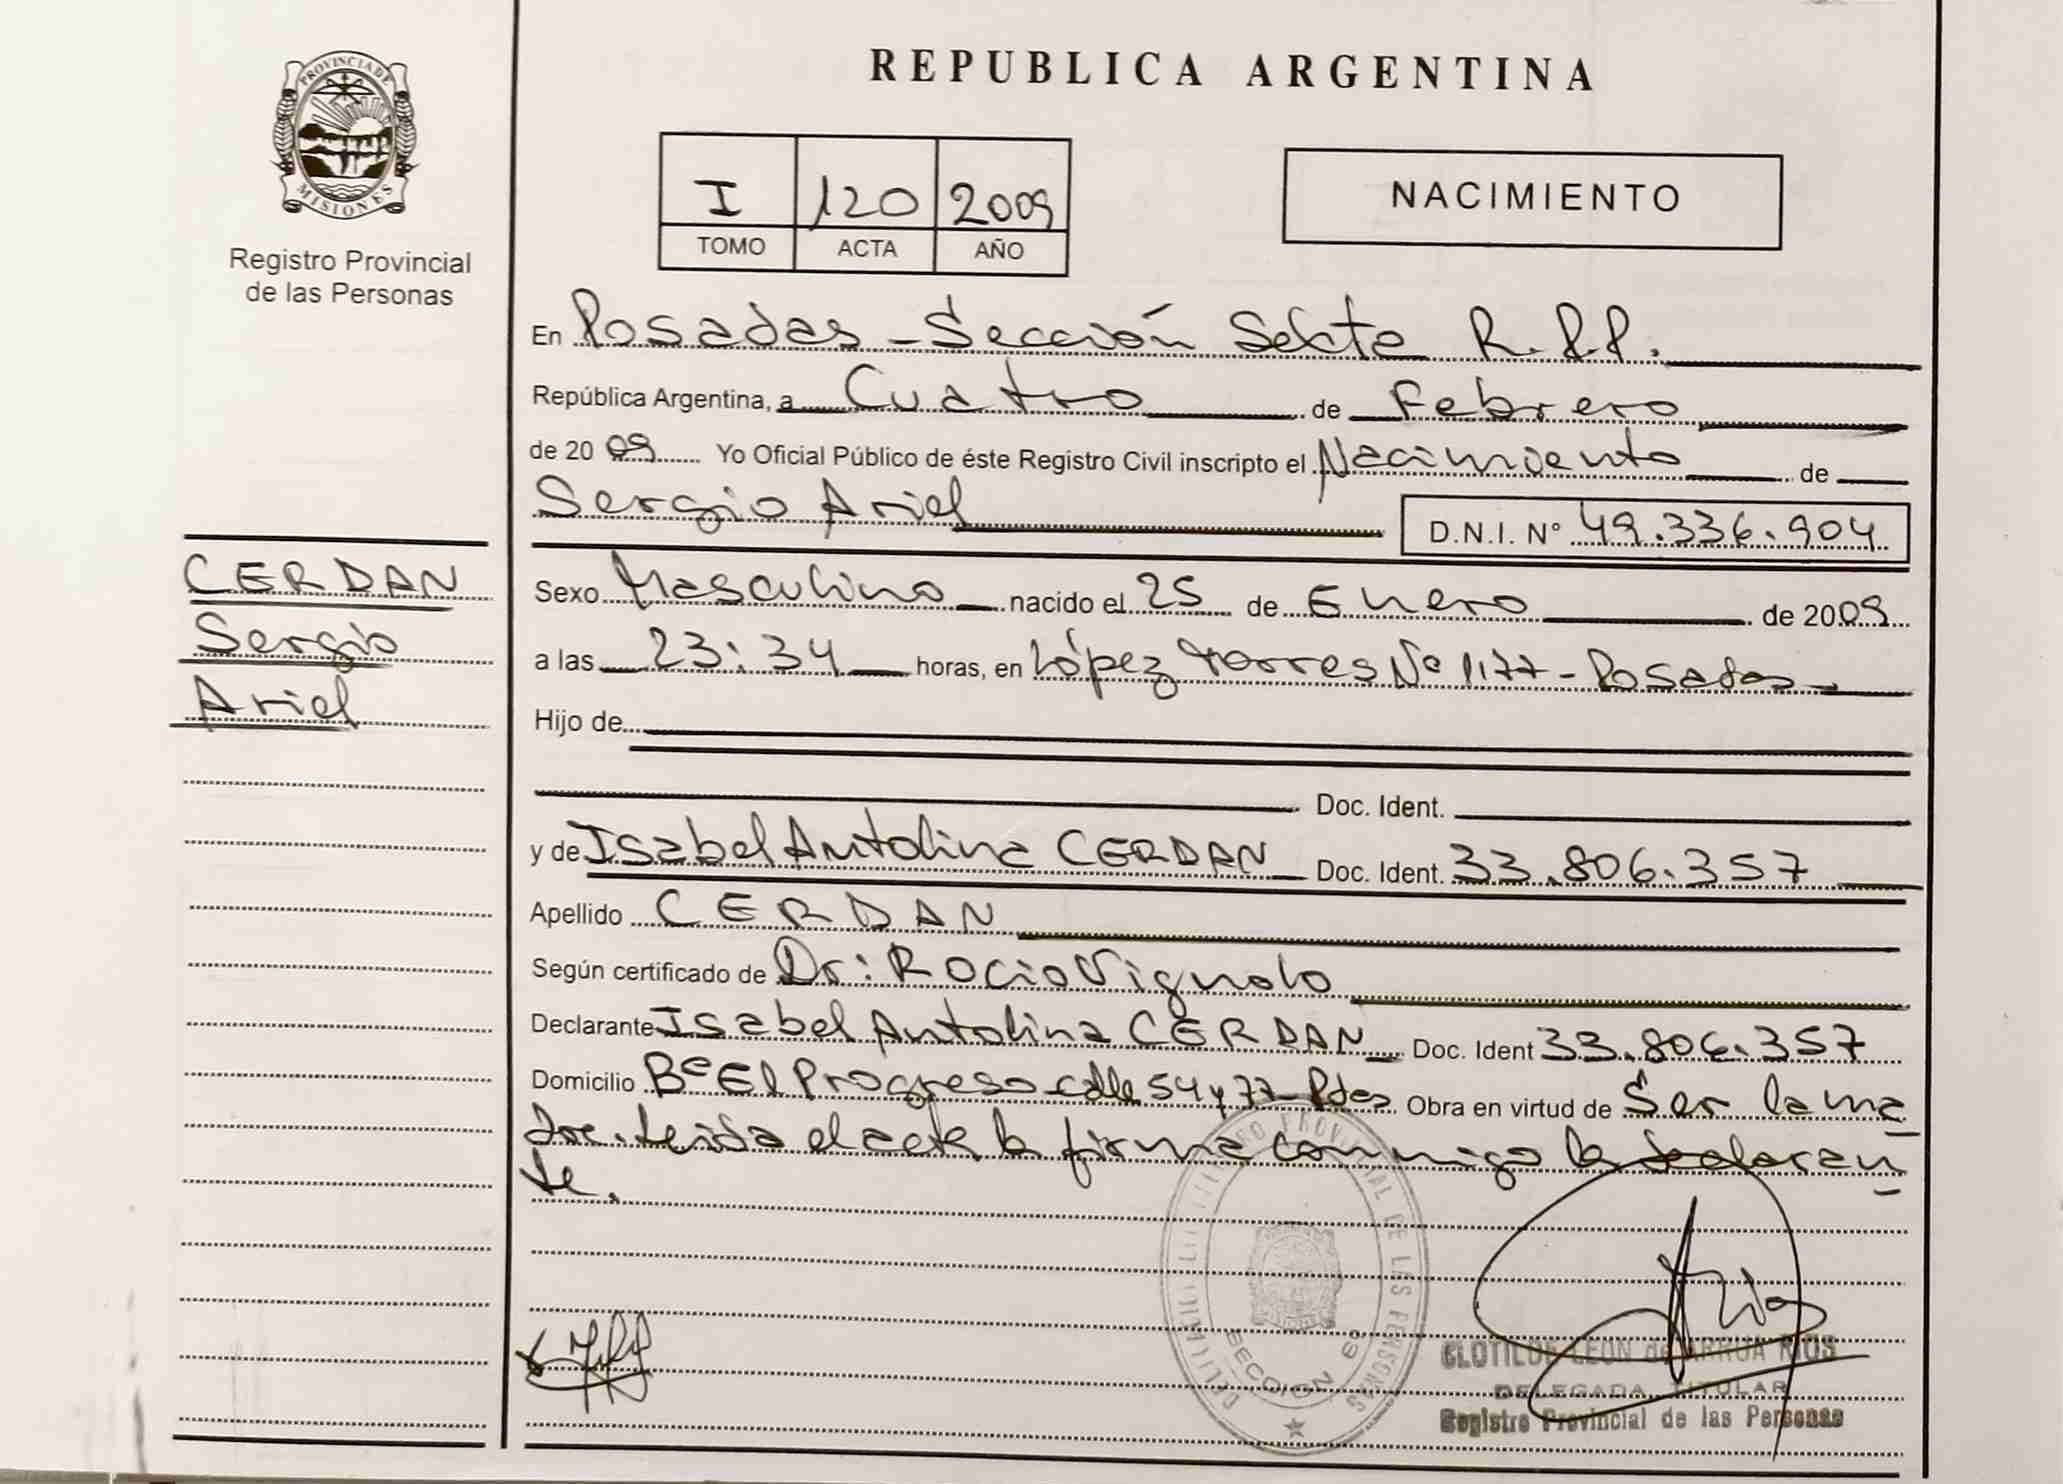 REPUBLICA ARGENTINA
PROVINCIA DE
MISIONES
Registro Provincial
de las Personas
I 120 2009
TOMO ACTA AÑO
NACIMIENTO
En Posadas - Sección Sexta R.P.P.
República Argentina, a Cuatro de Febrero
de 2009 Yo Oficial Público de éste Registro Civil inscripto el Nacimiento de
Sergio Ariel D.N.I. N° 49.336.904
CERDAN
Sergio
Ariel
Sexo Masculino nacido el 25 de Enero de 2009
a las 23:34 horas, en López Torres N° 1177 - Posadas -
Hijo de
Doc. Ident.
y de Isabel Antolina CERDAN Doc. Ident. 33.806.357
Apellido CERDAN
Según certificado de Dr: Rocio Vignolo
Declarante Isabel Antolina CERDAN Doc. Ident 33.806.357
Domicilio B° El Progreso calle 54 y 77 - Pdas Obra en virtud de Ser la ma
dre. leida el acta la firma conmigo la declaran
te.
REGISTRO PROVINCIAL DE LAS PERSONAS
SECCION 6°
CLOTILDE LEON de ARRUA RIOS
DELEGADA TITULAR
Registro Provincial de las Personas